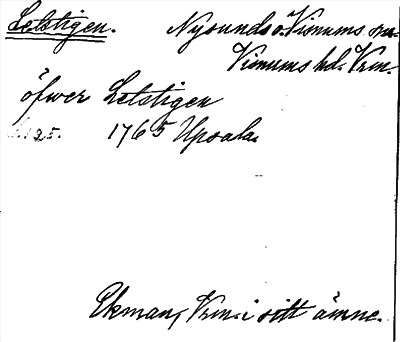 Letstigen. Nysunds o. Visnums snr
Visnums hd. Vrm.
öfwer Letstigen
125. 1765 Upsala.
Ekman, Vrm. i sitt ämne.